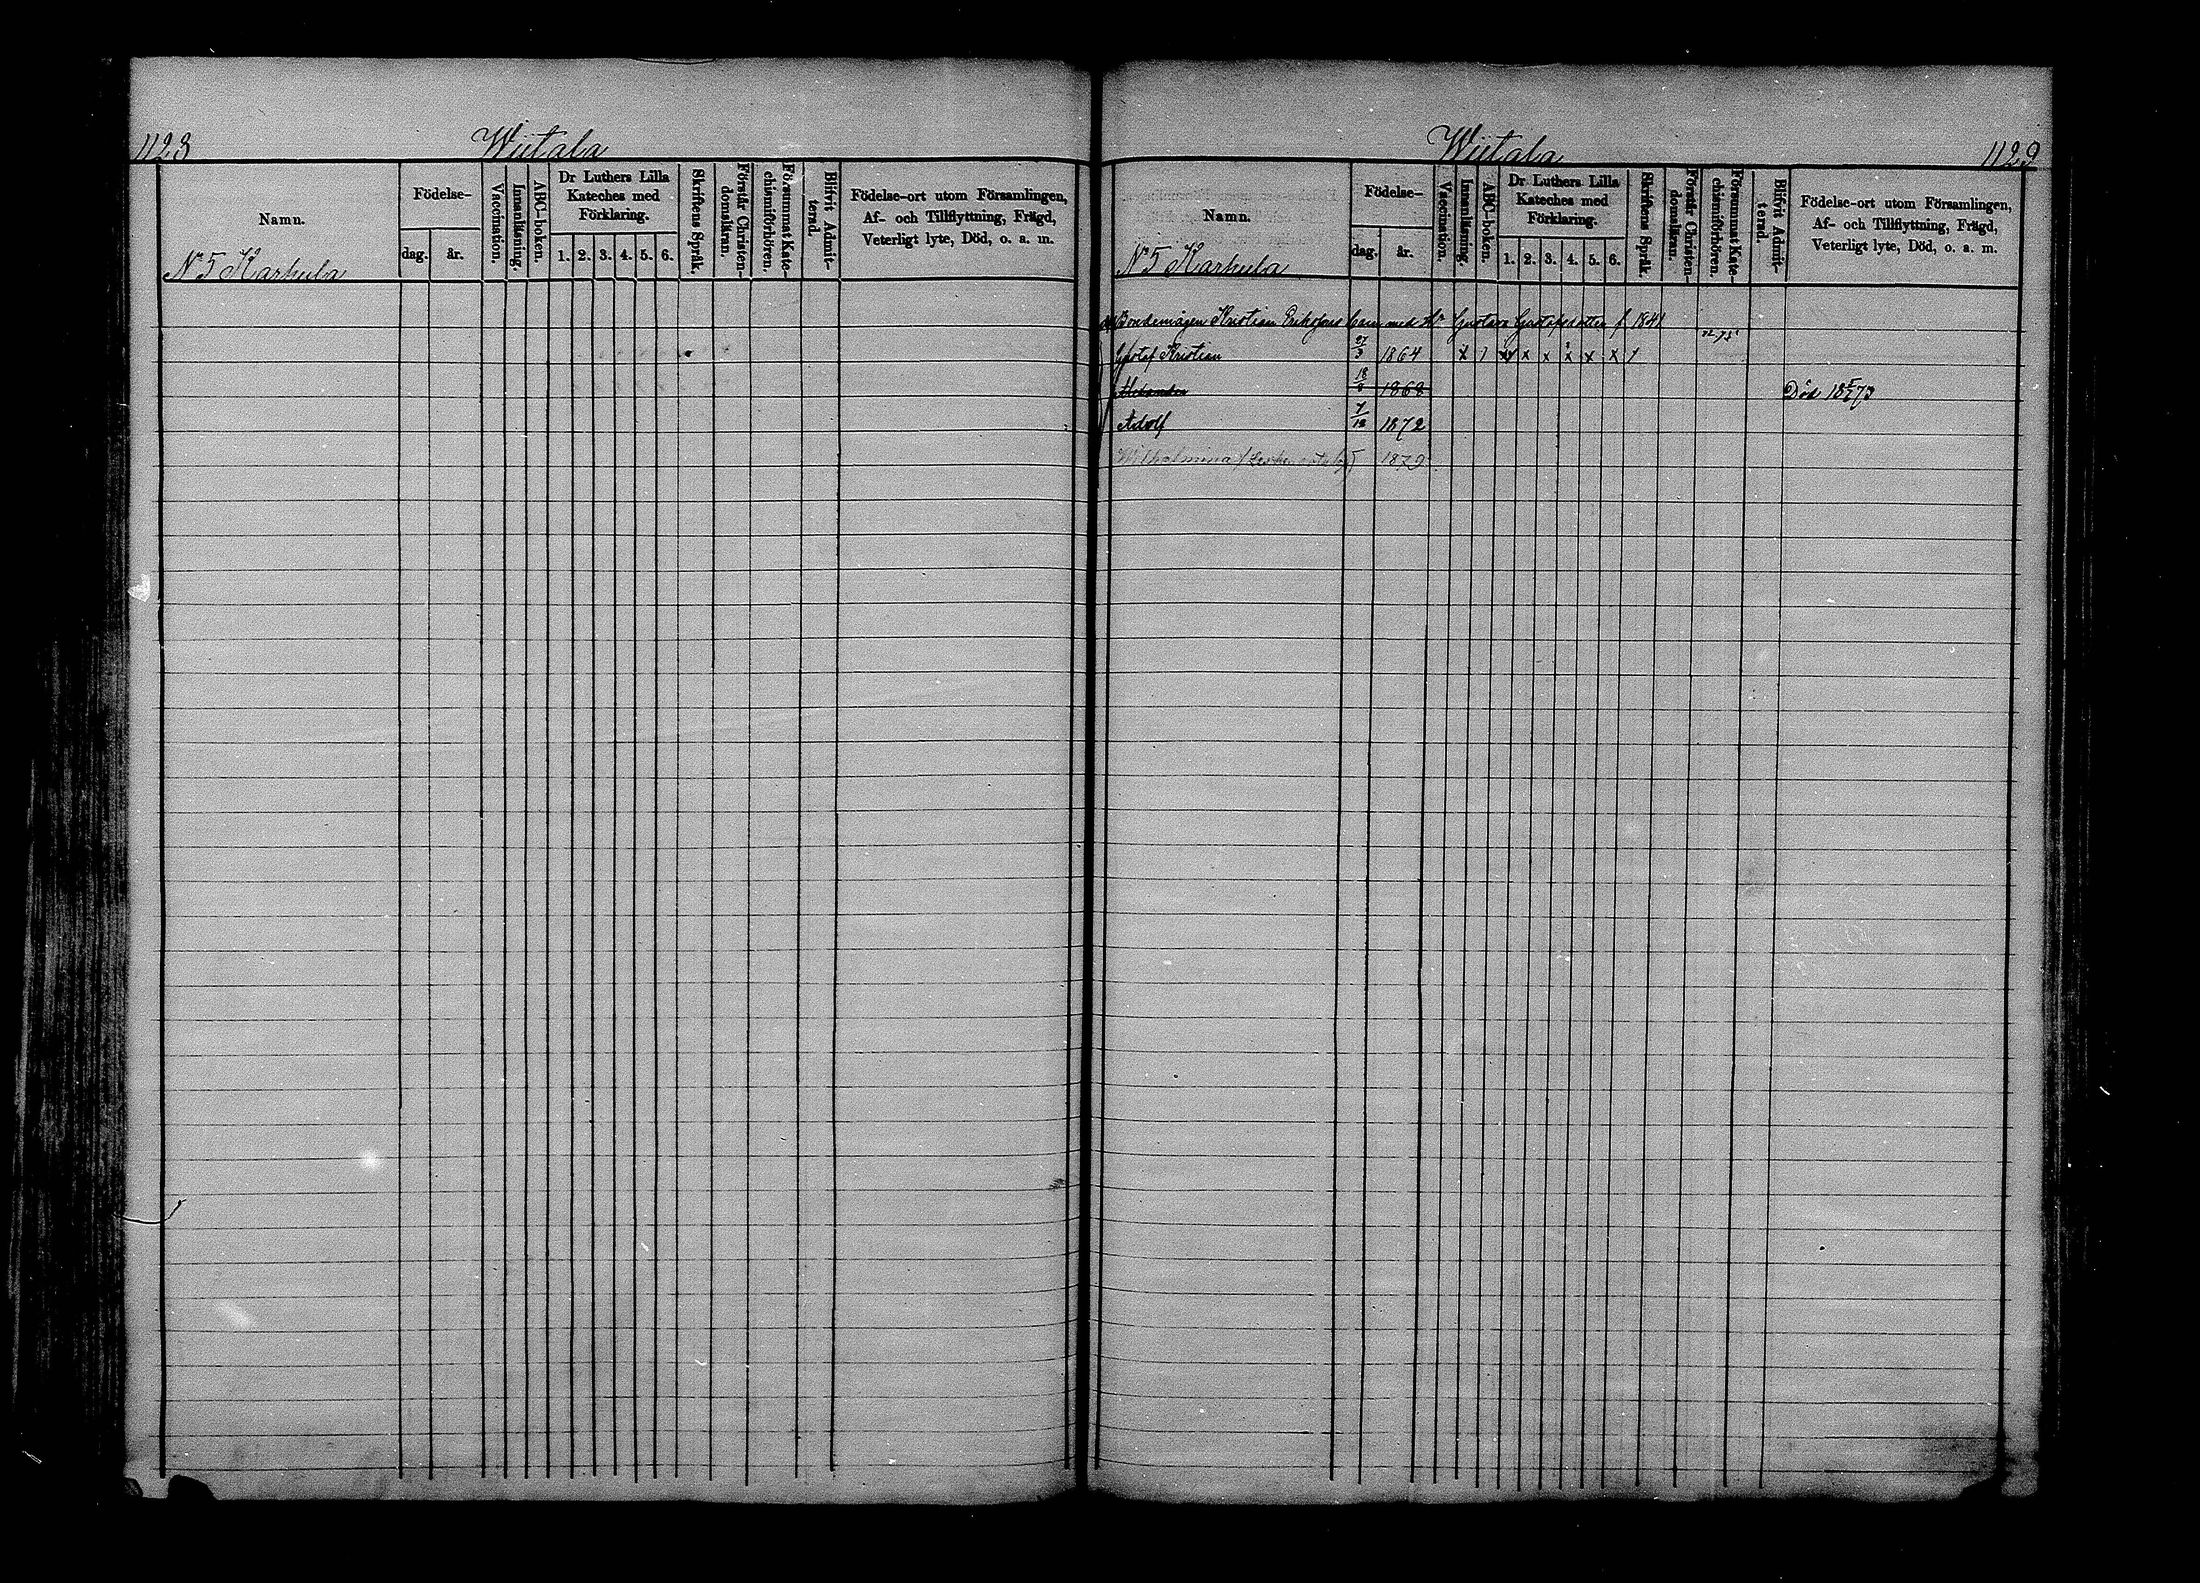 1128 Wiitala
Namn.
Födelse-
dag. år.
Vaccination.
Innanläsning.
ABC-boken.
Dr Luthers Lilla Kateches med Förklaring.
1. 2. 3. 4. 5. 6.
Skriftens Språk.
Förstår Christen-domsläran.
Försummat Kate-chismiförhören.
Blifvit Admit-terad.
Födelse-ort utom Församlingen,
Af- och Tillflyttning, Frägd,
Veterligt lyte, Död, o. a. m.
N 5 Karhula
Wiitala 1129
Namn.
Födelse-
dag. år.
Vaccination.
Innanläsning.
ABC-boken.
Dr Luthers Lilla Kateches med Förklaring.
1. 2. 3. 4. 5. 6.
Skriftens Språk.
Förstår Christen-domsläran.
Försummat Kate-chismiförhören.
Blifvit Admit-terad.
Födelse-ort utom Församlingen,
Af- och Tillflyttning, Frägd,
Veterligt lyte, Död, o. a. m.
N 5 Karhula
Bondemågen Kristian Eriksons barn med Gustava Gustafsdotter f 1841
Gustaf Kristian 27/3 1864 x 1 x x x x x x
Alexander 18/8 1868 Död
Adolf 7/12 1872
Wilhelmina 1879